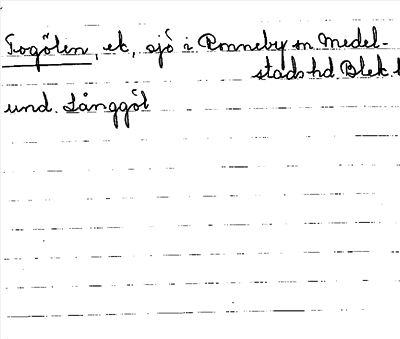 Fogölen, ek, sjö i Ronneby sn Medel-
stads hd Blek. l
und. Långgöl